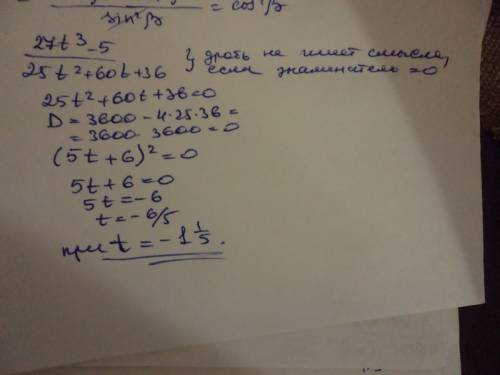 sin²β = cos²β
27t³-5
25t²+60t+36 } дробь не имеет смысла,
если знаминатель =0
25t²+60t+36=0
D = 3600 - 4·25·36 =
= 3600-3600=0
(5t+6)²=0
5t+6=0
5t=-6
t=-6/5
при t = -1 1/5.